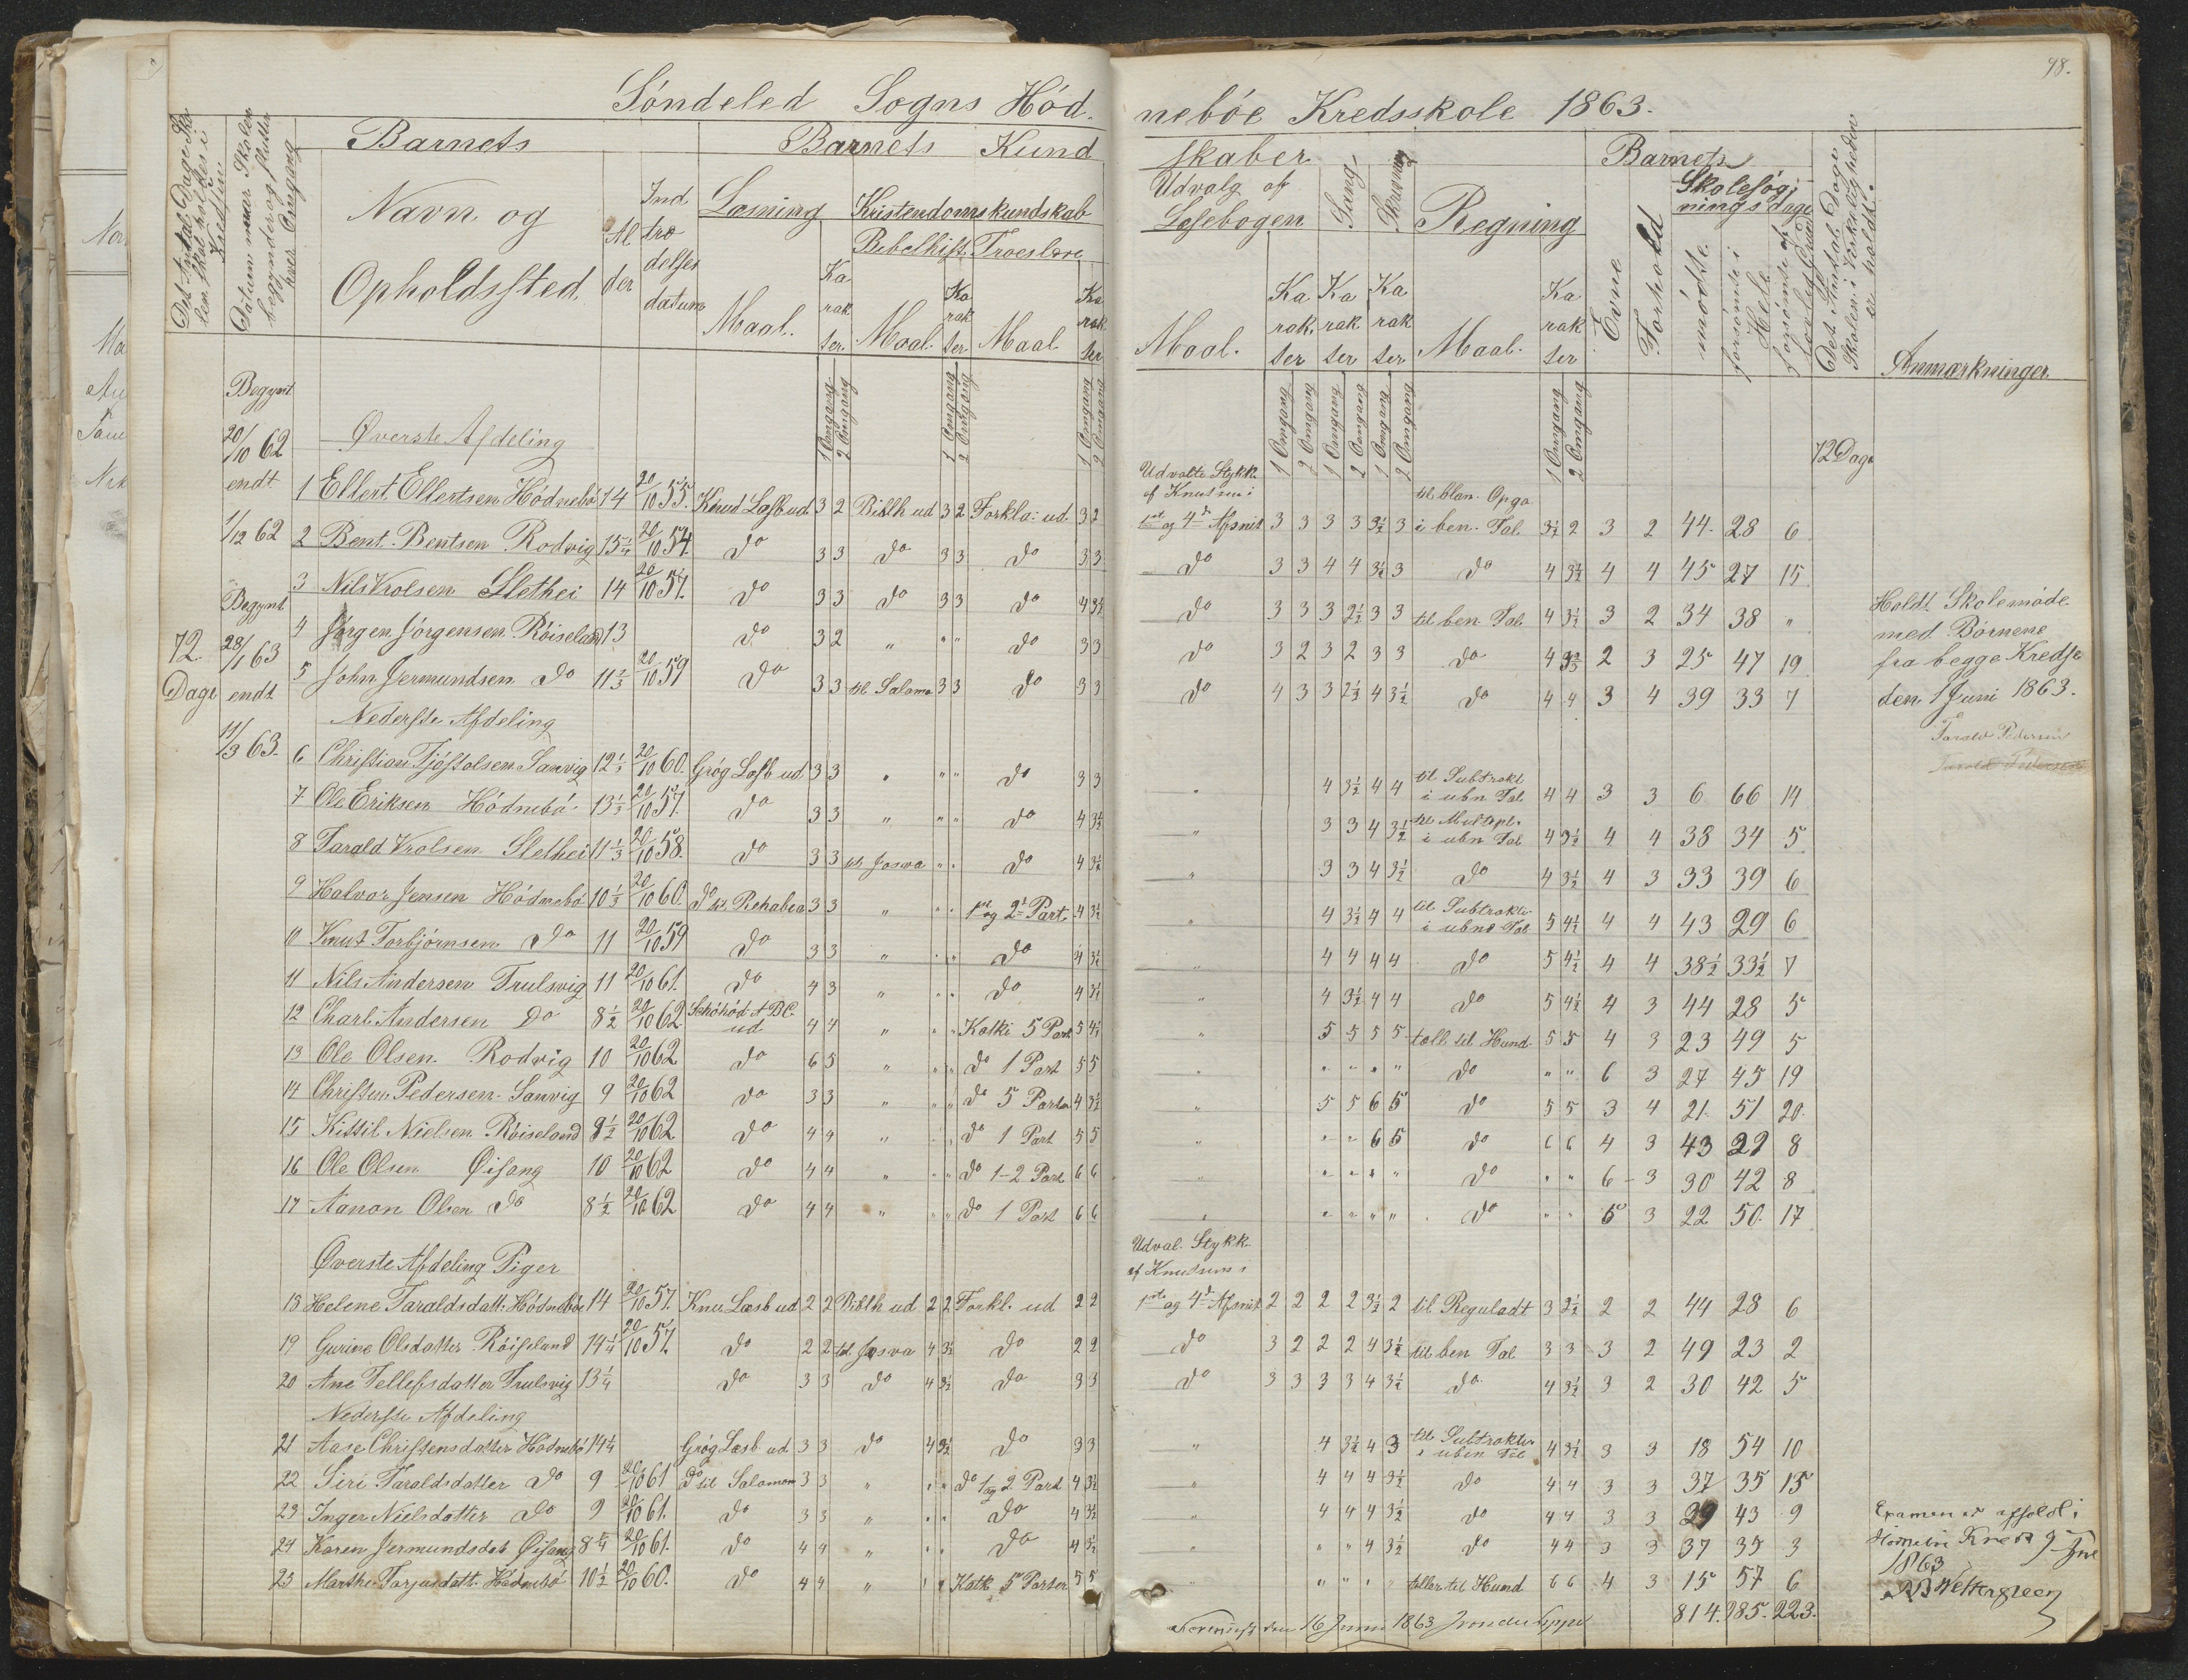 98.
Søndeled Sogns Hød-
nebøe Kredsskole 1863.
Det Antal Dage Sko
len skal holdes i
Kredsen
Datum naar Skolen
begynder og slutter
hver Omgang
Barnets
Navn og
Opholdssted
Al
der
Ind
træ
delses
datum
Barnets Kund
Læsning
Maal.
Ka
rak
ter.
Kristendomskundskab
Bibelhist.
Maal.
Ka
rak
ter
Troeslære
Maal
Ka
rak
ter
skaber
Udvalg af
Læsebogen
Maal.
Ka
rak.
ter
Sang
Ka
rak
ter
Skrivning
Ka
rak
ter
Regning
Maal.
Ka
rak
ter
Barnets
Evne
Forhold
Skolesøg
ningsdage
mødte
forsømte i
Hele
forsømte af
lovlig Grund
Det Antal Dage
Skolen i Virkeligheden
er holdt.
Anmærkninger.
1 Omgang 2 Omgang 1 Omgang 2 Omgang 1 Omgang 2 Omgang
1 Omgang 2 Omgang 1 Omgang 2 Omgang 1 Omgang 2 Omgang 1 Omgang 2 Omgang
72
Dage
Begynt
20/10 62
endt
1/12 62
Begynt
28/1 63
endt
11/3 63.
72 Dage
Øverste Afdeling
Udvalte Stykk.
af Knudsens i
til blan. Opga
1 Ellert Ellertsen Hødnebø 14 20/10 55. Knud Læsb ud 3 2 Biblh ud 3 2 Forkla: ud. 3 2 1ste og 4de Afsnit 3 3 3 3 3½ 3 i ben. Tal 3½ 2 3 2 44. 28 6
2 Bent Bentsen Rodvig 15¼ 20/10 54. do 3 3 do 3 3 do 3 3 do 3 3 4 4 3½ 3 do 4 3½ 4 4 45 27 15
3 Nils Vrolsen Slethei 14 20/10 57. do 3 3 do 3 3 do 4 3½ do 3 3 3 2½ 3 3 til ben. Tal 4 3½ 3 2 34 38 "
4 Jørgen Jørgensen Røiseland 13 do 3 2 " " " do 3 3 do 3 2 3 2 3 3 do 4 2 3 25 47 19
5 John Jermundsen do 11⅔ 20/10 59 do 3 3 til Salomo 3 3 do 3 3 do 4 3 3 2½ 4 3½ do 4 4 3 4 39 33 7
Nederste Afdeling
6 Christian Tjøstolsen Sanvig 12⅓ 20/10 60. Grøg Læsb ud 3 3 " " " do 3 3 " 4 3½ 4 4 til Subtrakt i ubn Tal 4 4 3 3 6 66 14
7 Ole Eriksen Hødnebø 13⅓ 20/10 57. do 3 3 " " " do 4 3½ " 3 3 4 3½ til Multipl. i ubn Tal 4 3½ 4 4 38 34 5
8 Tarald Vrolsen Slethei 11⅓ 20/10 58. do 3 3 til Josva " " do 4 3½ " 3 3 4 3½ do 4 3½ 4 3 33 39 6
9 Halvor Jensen Hødnebø 10⅓ 20/10 60. do til Rehabea 3 3 " " " 1ste og 2den Part. 4 3½ " 4 3½ 4 4 til Subtrakt. i ubne Tal 5 4½ 4 4 43 29 6
10 Knut Torbjørnsen do 11 20/10 59 do 3 3 " " " do 4 3½ " 4 4 4 4 do 5 4½ 4 4 38½ 33½ 7
11 Nils Andersen Trulsvig 11 20/10 61. do 4 3 " " " do 4 3½ " 4 3½ 4 4 do 5 4½ 4 3 44 28 5
12 Charl. Andersen do 8½ 20/10 62 ABC. ud 4 4 " " " Katki 5 Part 5 4½ " 5 5 5 5 tælle til Hund. 5 5 4 3 23 49 5
13 Ole Olsen Rodvig 10 20/10 62 do 6 5 " " " do 1 Part 5 5 " " " " " do " " 6 3 27 45 19
14 Christen Pedersen Sanvig 9 20/10 62 do 3 3 " " " do 5 Parter 4 3½ " 5 5 6 5 do 5 5 3 4 21. 51 20.
15 Kittil Nielsen Røiseland 8½ 20/10 62 do 4 4 " " " do 1 Part 5 5 " " " 6 5 do 6 6 4 3 43 29 8
16 Ole Olsen Øisang 10 20/10 62 do 4 4 " " " do 1-2 Part 6 6 " " " " " do " " 6 3 30 42 8
17 Aanon Olsen do 8½ 20/10 62 do 4 4 " " " do 1 Part 6 6 " " " " " do " " 6 3 22 50. 17
Øverste Afdeling Piger
Udval. Stykk.
af Knudsens i
18 Helene Taraldsdatt. Hødnebøe 14 20/10 57. Knu Læsb ud 2 2 Biblh ud 2 2 Forkl. ud 2 2 1ste og 4de Afsnit 2 2 2 2 3½ 2 til Reguladt 3 2½ 2 2 44 28 6
19 Gurine Olsdatter Røiseland 14¼ 20/10 57. do 2 2 til Josva 4 3½ do 2 2 do 3 2 2 2 4 3½ til ben Tal 3 3 3 2 49 23 2
20 Ane Tellefsdatter Trulsvig 13¼ do 3 3 do 4 3½ do 3 3 do 3 3 3 3 4 3½ do 4 3½ 3 2 30 42 5
Nederste Afdeling
21 Aase Christensdatter Hødnebø 14¼ Grøg Læsb ud 3 3 do 4 3½ do 3 3 " 4 3½ 4 3 til Subtrakt. i uben Tal 4 3½ 3 3 18 54 10
22 Siri Taraldsdatter do 9 20/10 61 do til Salomon 3 3 " " " do 1 og 2 Part 4 3½ " 4 4 4 3½ do 4 4 3 3 37 35 15
23 Inger Nielsdatter do 9 20/10 61. do 3 3 " " " do 4 3½ " 4 4 4 3½ do 4 4 3 3 29 43 9
24 Karen Jermundsdat Øisang 20/10 61. do 4 4 " " " do 4 3½ " " " 4 3½ do 4 4 3 3 37 35 3
25 Marthe Tarjusdatt. Hødnebø 10½ 20/10 60. do 4 4 " " " Katk. 5 Parter 5 5 " " " " tæller til Hund 6 6 4 3 15 57 6
814. 985. 223.
Holdt Skolemøde
med Børnene
fra begge Kredse
den 1 Juni 1863.
Tarald Pedersen
Tarald Pedersen
Examen er afholdt i
1863
Wettergreen
den 16 Juni 1863